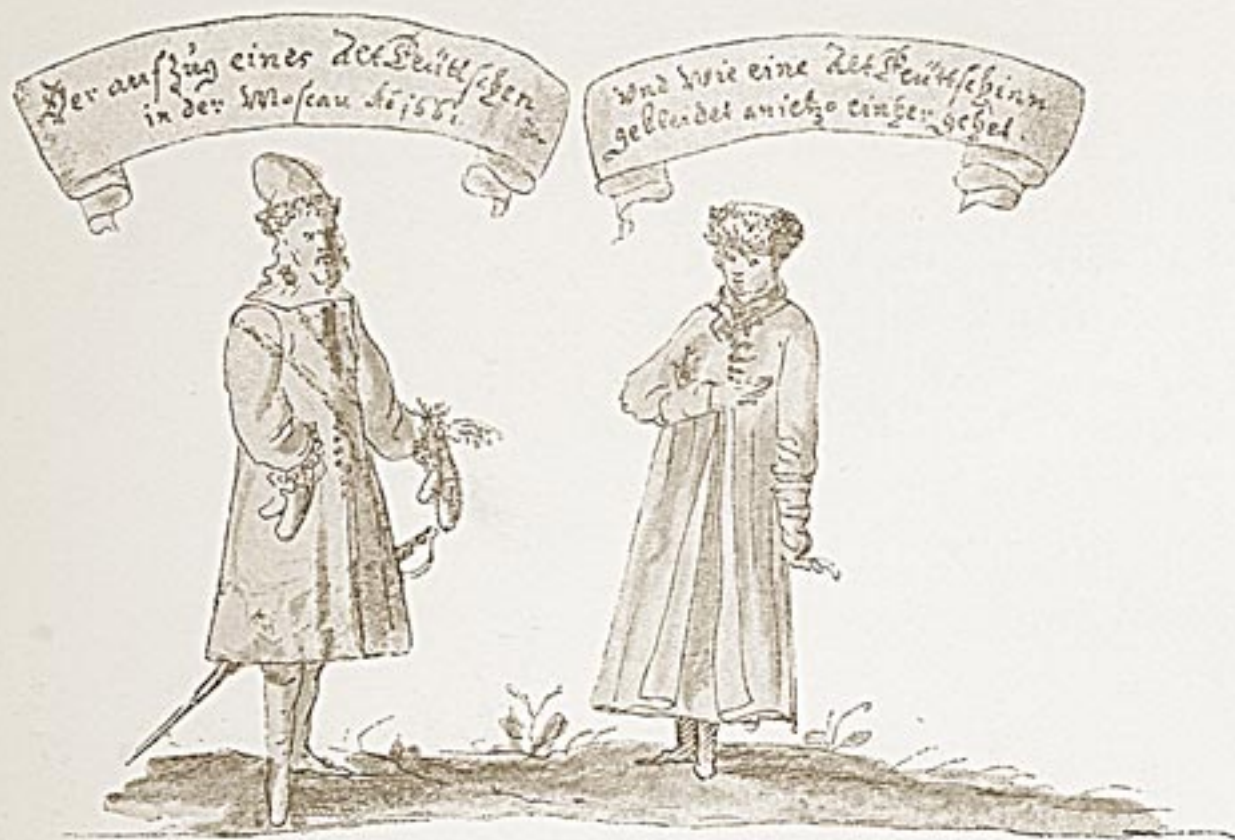 Der aufzüg eines Alt Teütschen
in der Moscau Aō 1661.
und wie eine Alt Teütschinn
gekleidet anietzo einher gehet.